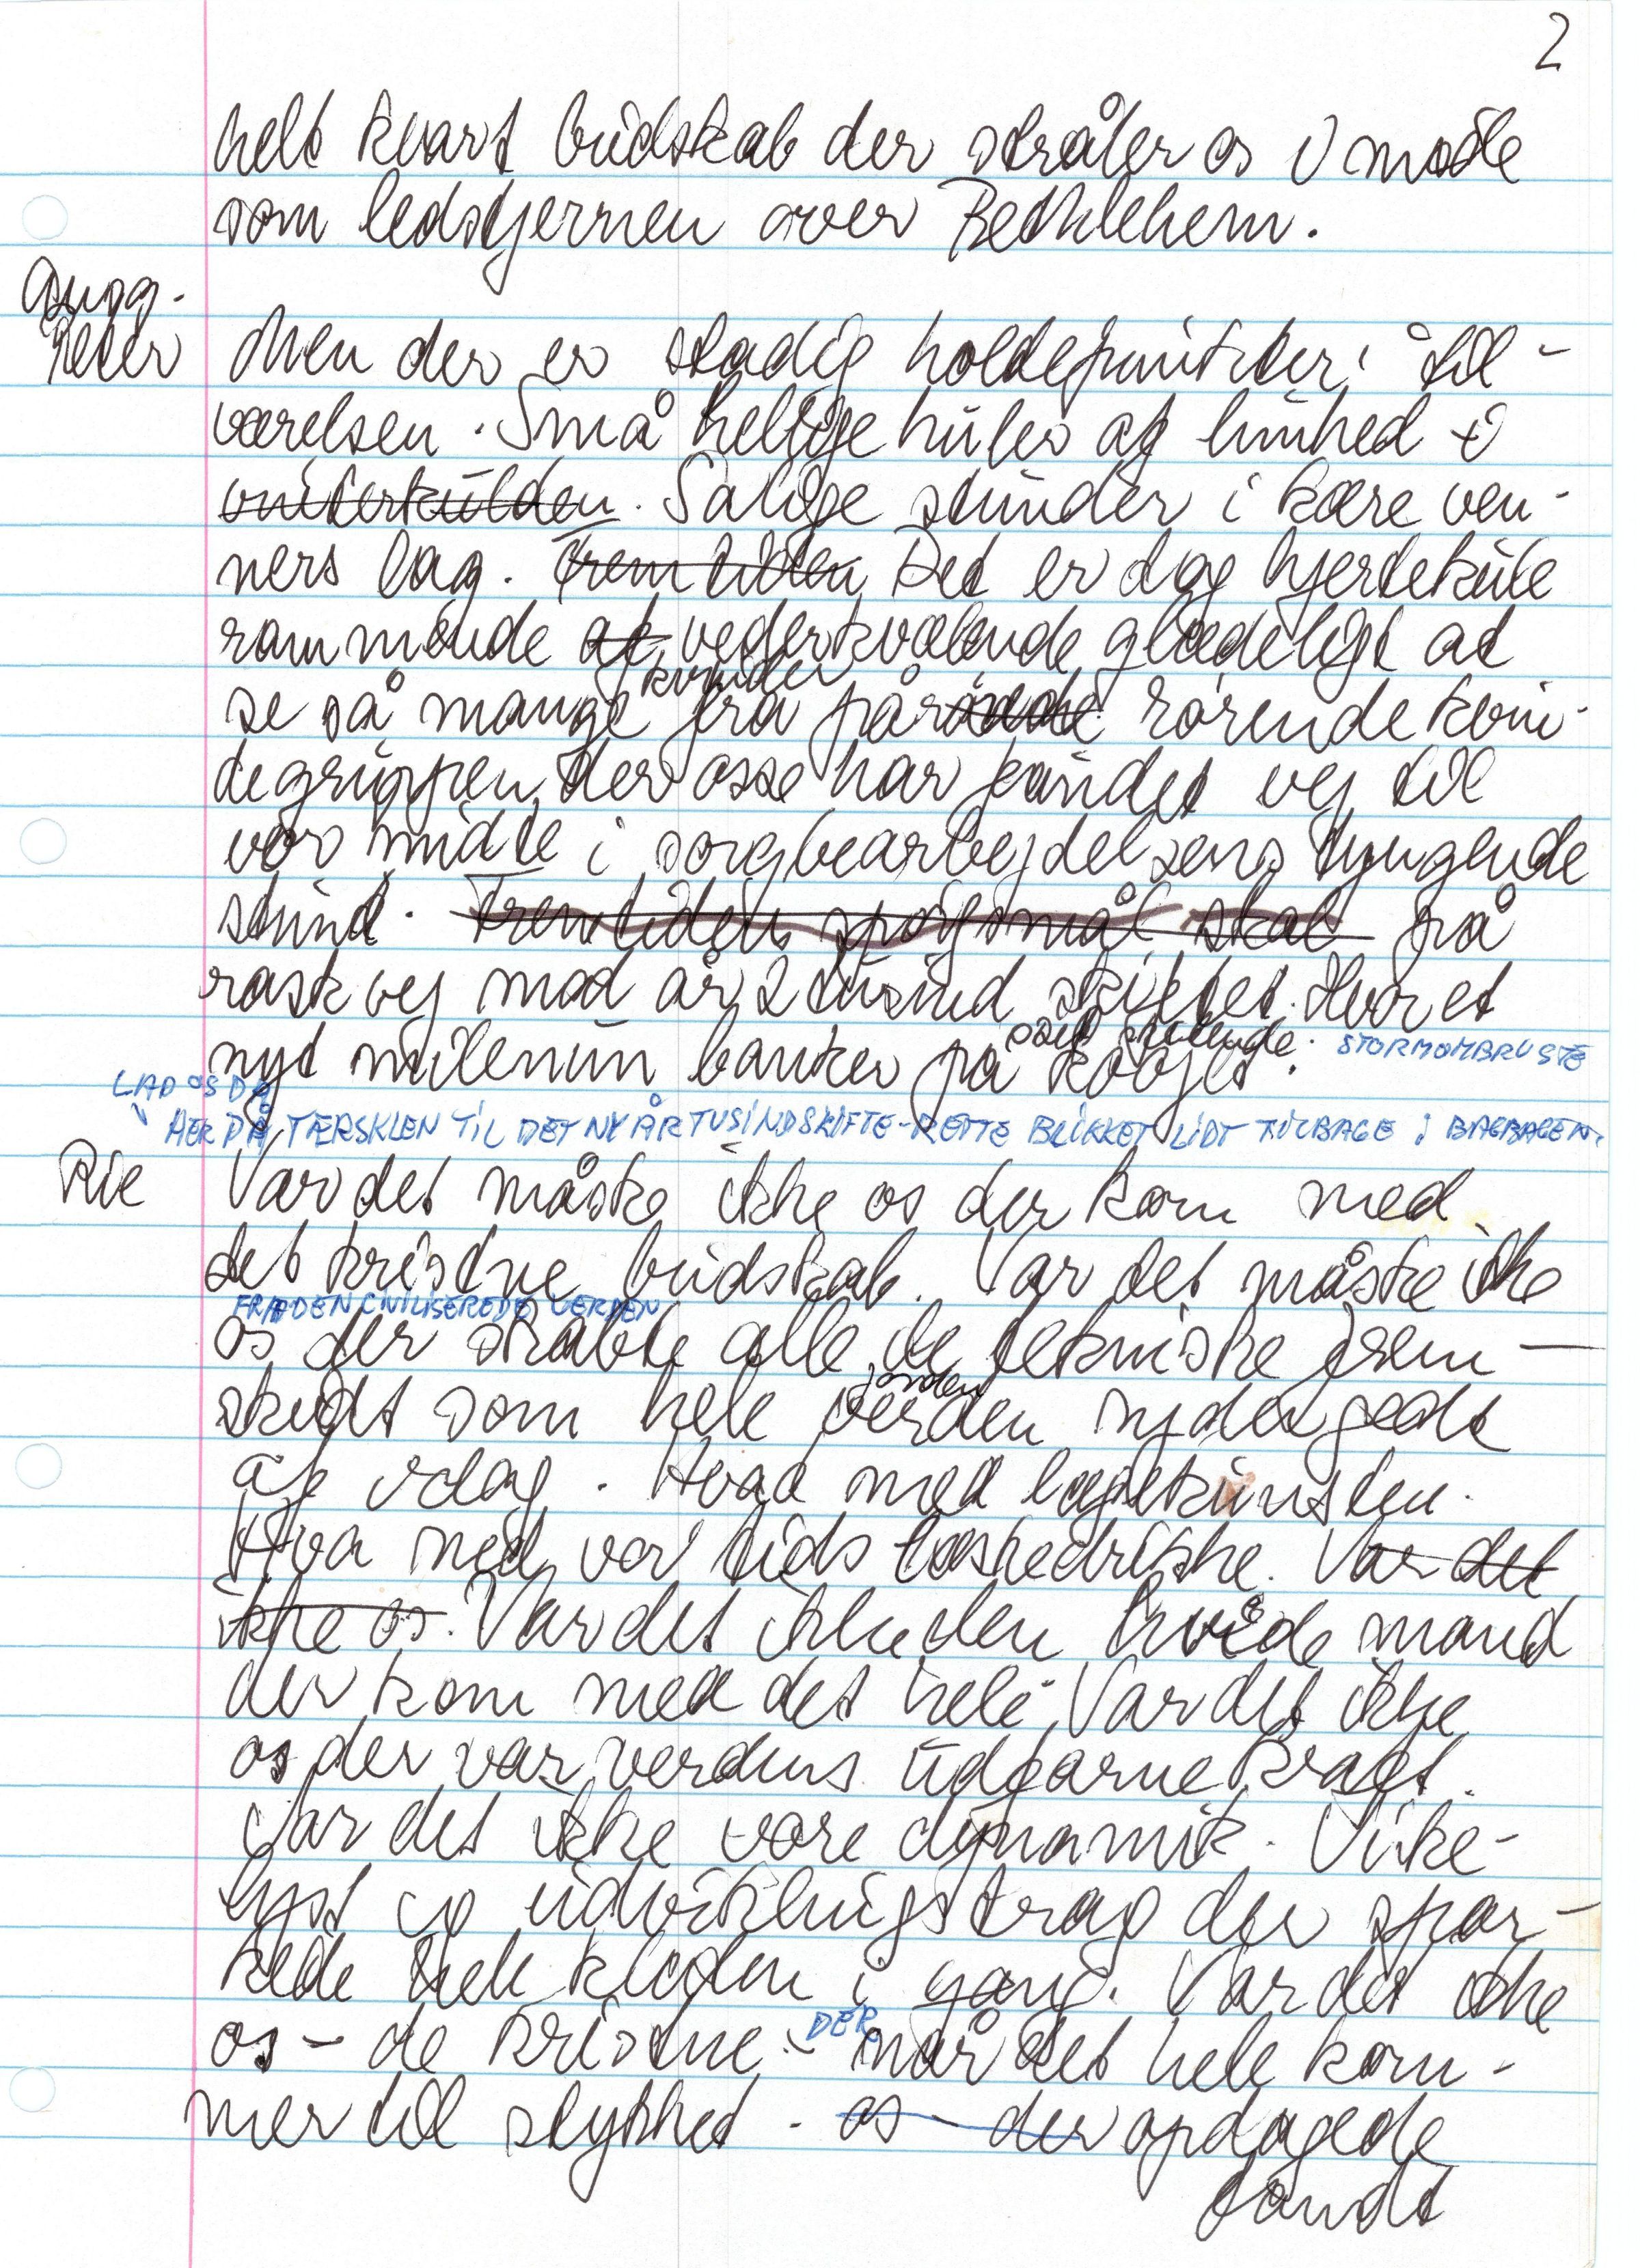 2
helt klart budskab der stråler os i møde
som ledstjernen over Bethlehem.
Peter
Men der er stadig holdepunkter i til-
værelsen. Små hellige huler af lunhed i
vinterkulden. Salige stunder i kære ven-
ners lag. Fremtiden Det er dog hjertekule
rammende at vederkvælende glædeligt at
kvinder
se så mange fra pårørende kvin-
degruppen der osse har fundet vej til
vor midte i sorgbearbejdelsens tyngende
stund. Fremtidens spørgsmål skal på
rask vej mod år 2 tusind skiftet. Hvor et
nyt milenium banker på
STORMOMBRUSTE
LAD OS DA
HER PÅ TÆRSKLEN TIL DET NY ÅRTUSINDSKIFTE - RETTE BLIKKET LIDT TILBAGE i BAGAGEN.
Rie
Var det måske ikke os der kom med
det kristne budskab. Var det måske ikke
FRA DEN CIVILISEREDE VERDEN
os der skabte alle de tekniske frem-
jorden
skridt som hele verden nyder godt
af idag. Hvad med lægekunsten.
Hva med vor tids læskedrikke. Var det
ikke os. Var det ikke den hvide mand
der kom med det hele. Var det ikke
os der var verdens udfarne kraft.
Var det ikke vore dynamik. Virke-
lyst og udviklingstrang der spar-
kede hele kloden i gang. Var det ikke
DER
os - de kristne - når det hele kom-
mer til stykket - os - der opdagede
fandt